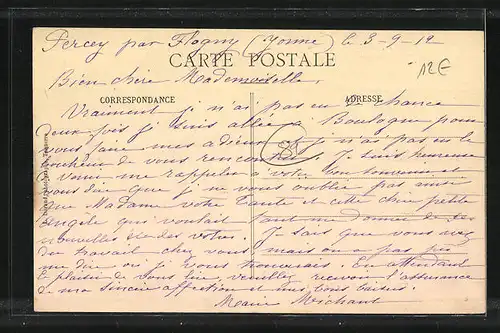 Percey par Flogny (Yonne) le 3-9-12
CARTE POSTALE
12€
Bien chère Mademoiselle,
CORRESPONDANCE ADRESSE
Vraiment je n'ai pas eu de chance
deux fois je suis allée à Boulogne pour
vous faire mes adieux je n'ai pas eu le
bonheur de vous rencontrer. Je suis heureuse
venir me rappeler à votre bon souvenir et
vous dire que je ne vous oublie pas ainsi
que Madame votre Tante et cette chère petite
Angèle qui voulait tant me donner de
nouvelles des votres. Je sais que vous avez
du travail chez vous mais on a pas pu
me dire où je vous trouverais. En attendant
le plaisir de vous lire veuillez recevoir l'assurance
de ma sincère affection et mes bons baisers.
Marie Michaut